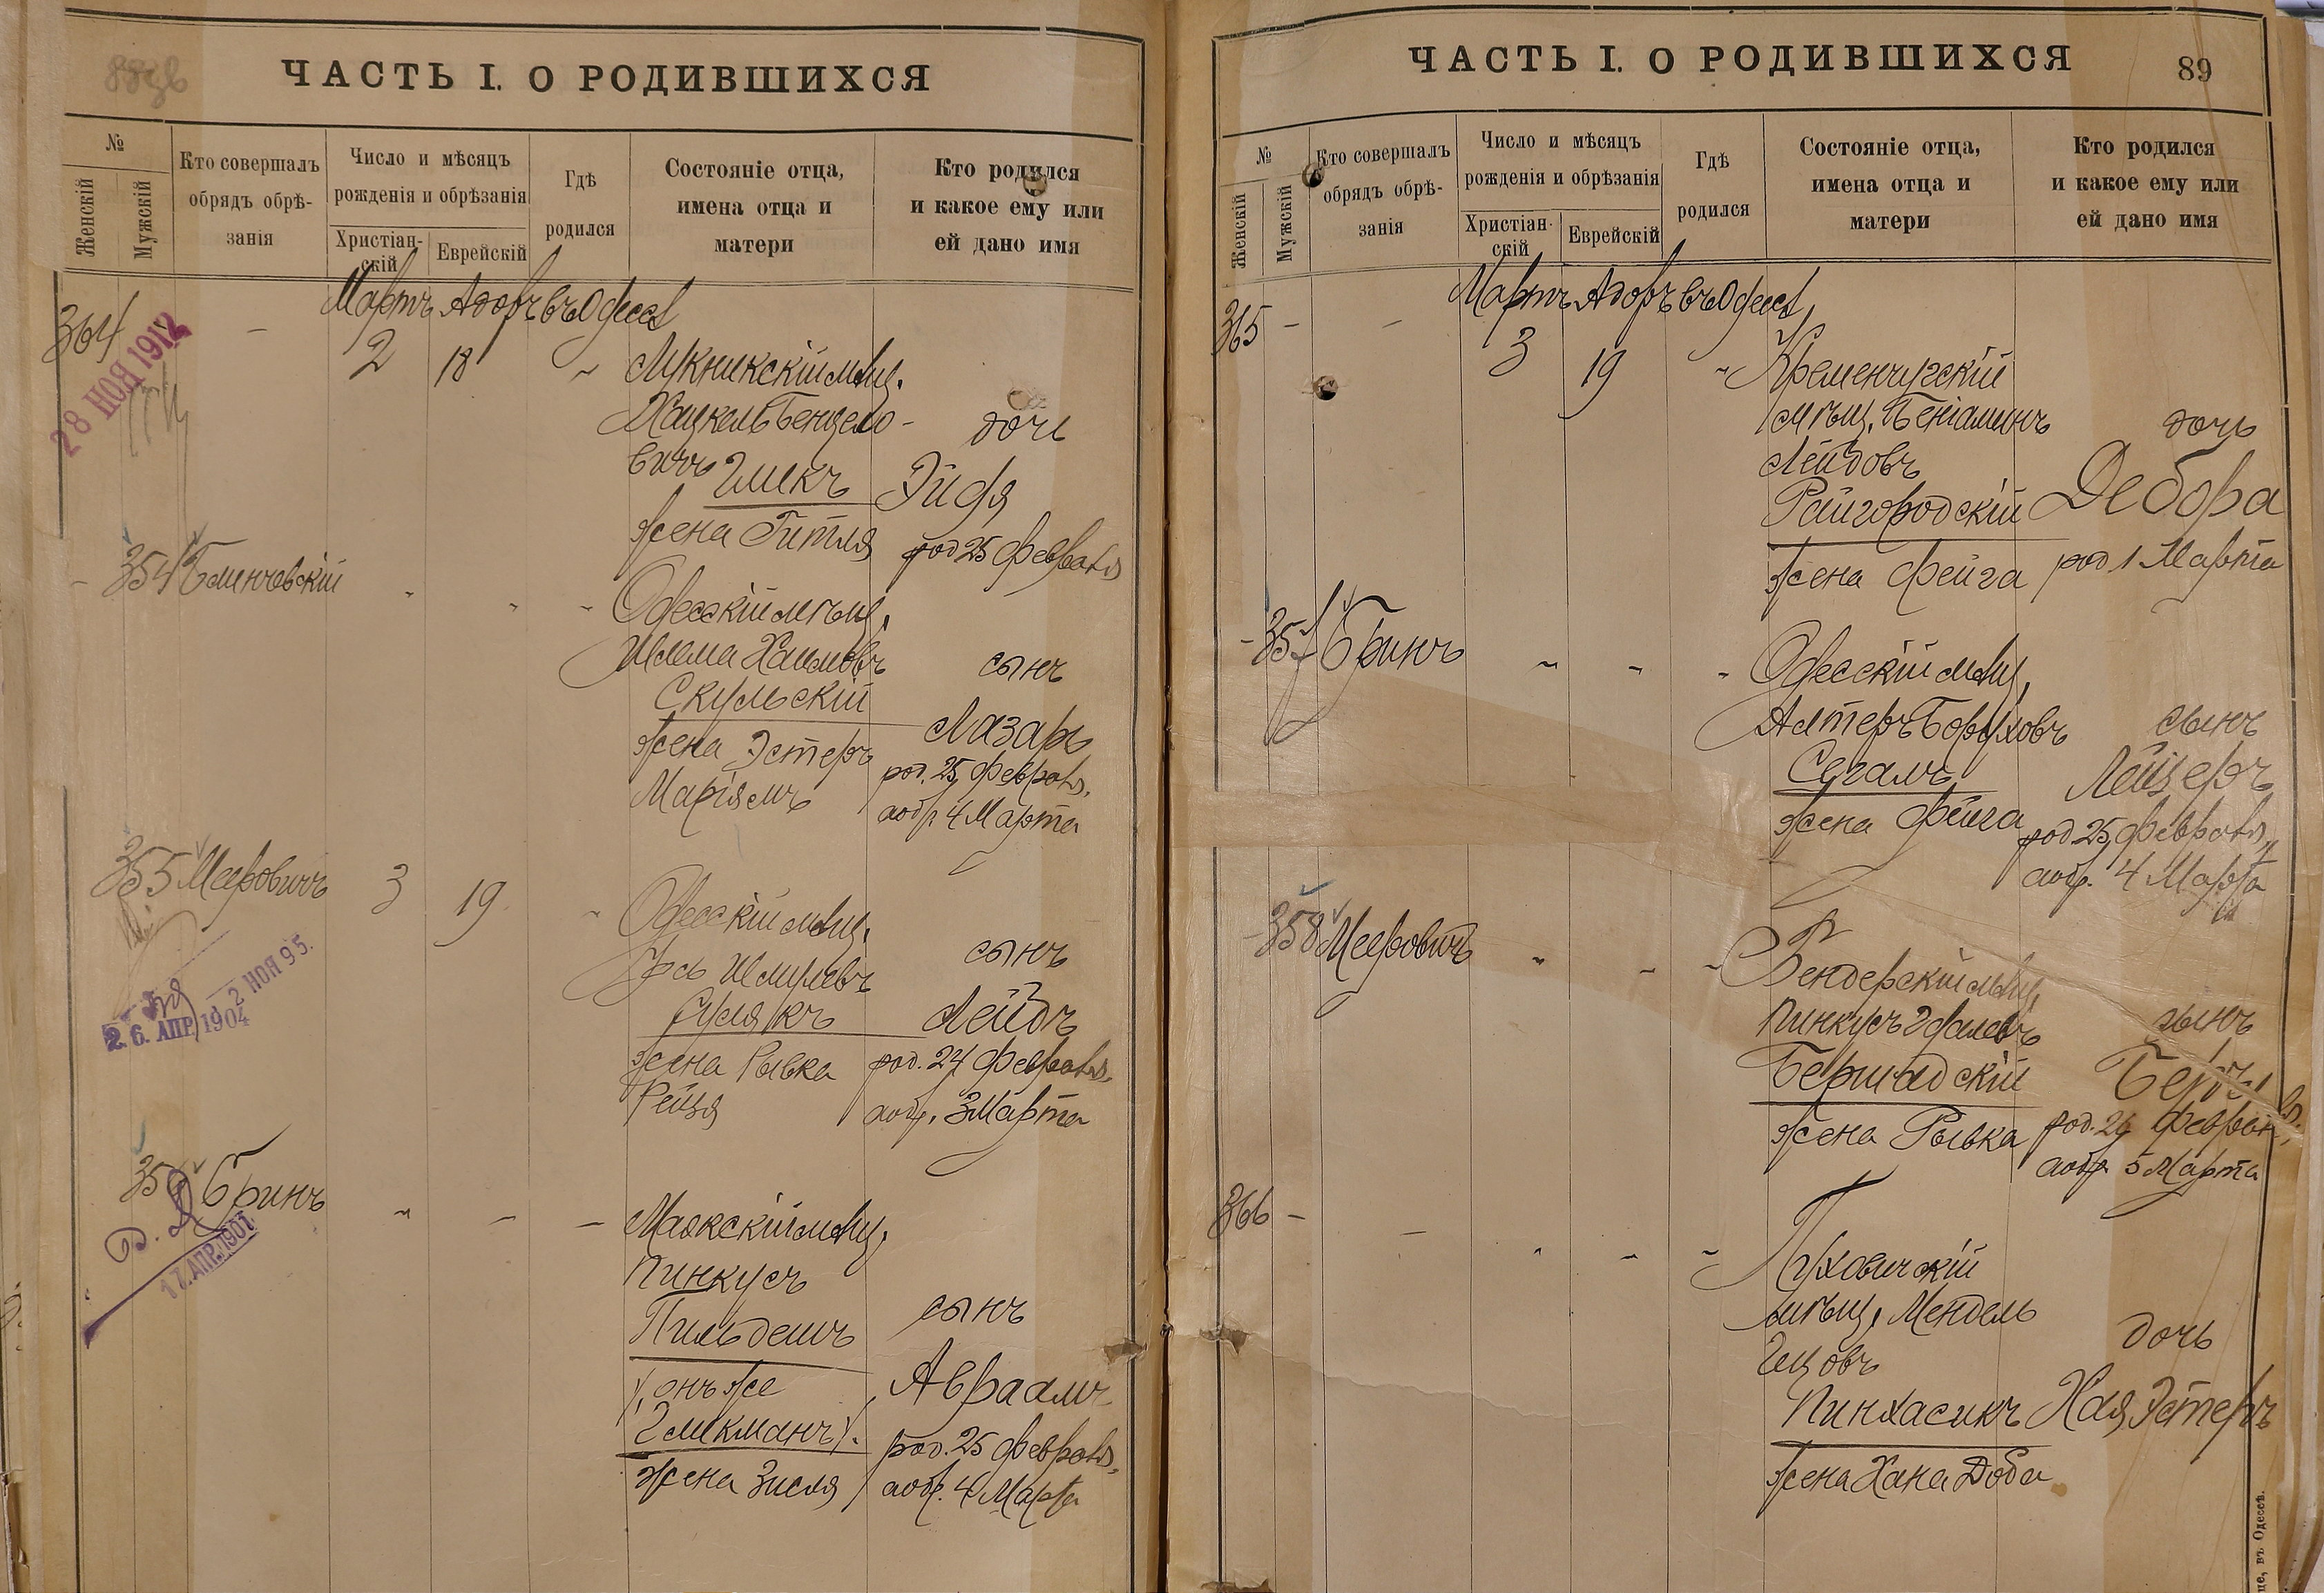 ЧАСТЬ I. О РОДИВШИХСЯ
№
Женскій
Мужскій
Кто совершалъ
обрядъ обрѣ-
занія
Число и мѣсяцъ
рожденія и обрѣзанія
Христіан-
скій
Еврейскій
Гдѣ
родился
Состояніе отца,
имена отца и
матери
Кто родился
и какое ему или
ей дано имя
Мартъ Адоръ въ Одессѣ
364 - 2 18 "
28 НОЯ 1912
мѣщ.
Хацкель Бенцело-
вичъ Гликъ
жена Гитля
дочь
Эйдя
род 25 февраля
- 354 Блинчевскій " " "
Одесскій мѣщ.
Шлема Хаимовъ
Скульскій
жена Эстеръ
Маріямъ
сынъ
Лазарь
род. 25 февраля,
а обр 4 Марта
355 Меровичъ 3 19 "
2 НОЯ 95.
26. АПР 1904
Одесскій мѣщ.
Ось Шмулевъ
Гулякъ
жена Рывка
Рейзя
сынъ
Лейбъ
род. 24 февраля,
а обр. 3 Марта
356 Бринъ " " "
17. АПР. 1907
Маякскій мѣщ.
Пинкусъ
Пильдешъ
/онъ же
Гликманъ/.
жена Зисля
сынъ
Авраамъ
род. 25 февраля,
а обр. 4 Марта
ЧАСТЬ I. О РОДИВШИХСЯ
89
№
Женскій
Мужскій
Кто совершалъ
обрядъ обрѣ-
занія
Число и мѣсяцъ
рожденія и обрѣзанія
Христіан-
скій
Еврейскій
Гдѣ
родился
Состояніе отца,
имена отца и
матери
Кто родился
и какое ему или
ей дано имя
Мартъ Адоръ въ Одессѣ
365 - - 3 19 "
Кременчугскій
мѣщ. Беніаминъ
Лейбовъ
Райгородскій
жена Фейга
дочь
Дебора
род 1 Марта
- 357 Бринъ " " "
Одесскій мѣщ.
Алтеръ Боруховъ
Сегалъ
жена Фейга
сынъ
Лейзеръ
род 25 февраля,
а обр. 4 Марта
- 358 Меровичъ " " "
Бендерскій мѣщ.
Пинкусъ
Бершадскій
жена Рывка
сынъ
Беръ
род. 26 февраля,
а обр 5 Марта
366 - - " " "
Пуховичскій
мѣщ. Мендель
Ицовъ
Пинхасикъ
жена Хана Доба
дочь
Хая Эстеръ
въ Одессѣ.